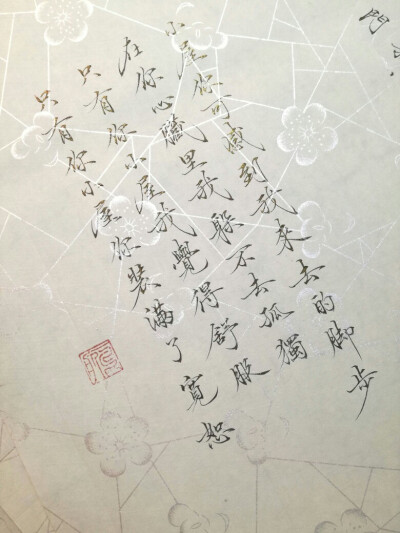 門
小屋你可感到我來去的脚步
在你心臟里我躲不去孤獨
只有你小屋我覺得舒服
只有你小屋你裝滿了寬恕